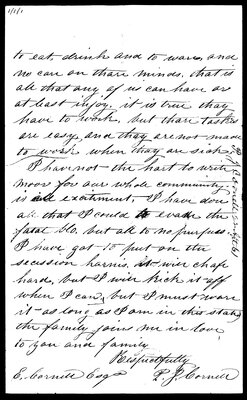 to eat, drink and to ware, and
no care on thare minds. that is
all that any of us can have or
at least injoy. it is true thay
have to work, but thare tasks
are easy, and thay are not made
to work when thay are sick
I have not the hart to write
moor for our whole community
is all exsitment, I have don
all that I could to evade the
fatal blo. but all to no purpuss.
I have got to put on the
secession harnis. it will chafe
hard, but I will kick it off
when I can, but I must ware
it as long as I am in this state
the family joins me in love
to you and family.
Respectfully
E. Cornell Esqr P. J. Cornell
P. J. Cornell